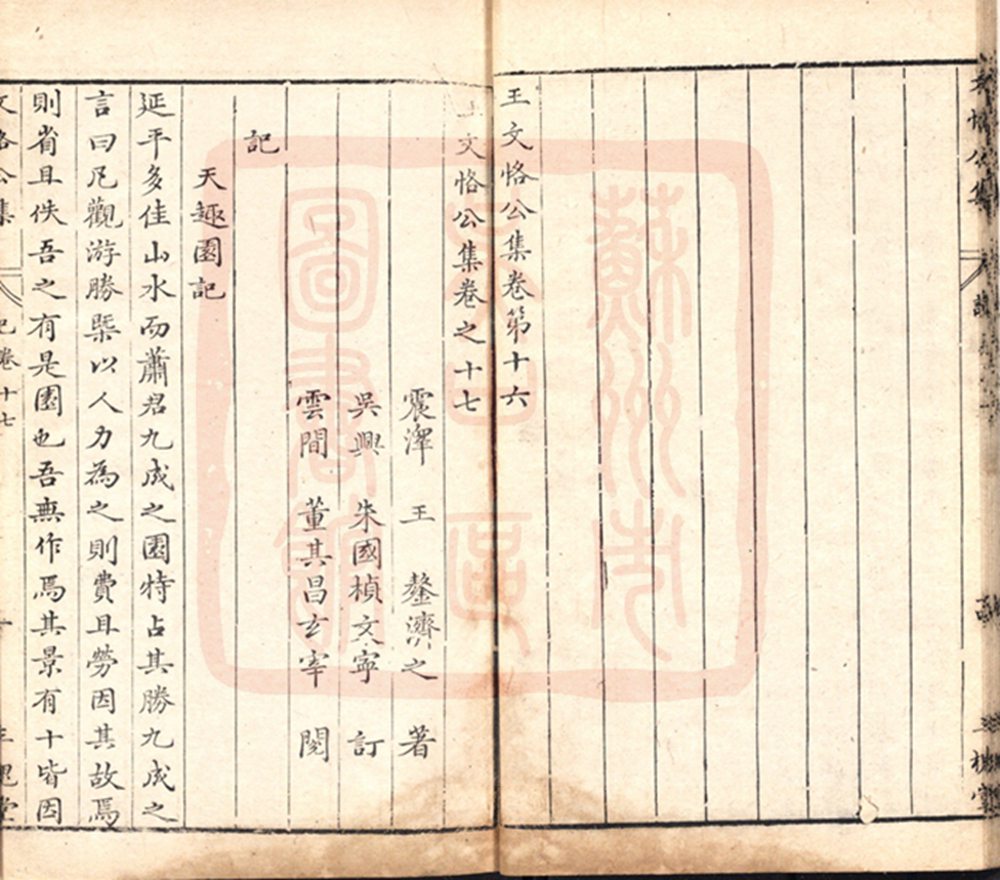 王文恪公集卷第十六
王文恪公集卷之十七
震澤　王　鏊濟之　著
吳興　朱國楨文寜　訂
雲間　董其昌玄宰　閱
記
天趣園記
延平多佳山水而蕭君九成之園特占其勝九成之
言曰凡觀游勝槩以人力為之則費且勞因其故焉
則省且佚吾之有是園也吾無作焉其景有十皆因
文恪公集　記卷十七　三槐堂
蘇州市　圖書館